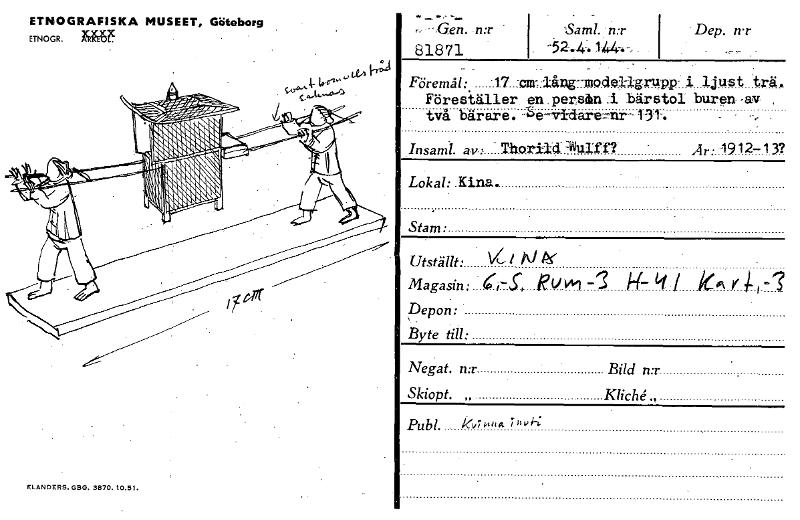 ETNOGRAFISKA MUSEET, Göteborg
ETNOGR. ARKEOL.
XXXX
svart bomullstråd
saknas
17 cm
ELANDERS. GBG. 3870. 10.51.
Gen. n:r Saml. n:r Dep. n:r
81871 52.4.144.
Föremål: 17 cm lång modellgrupp i ljust trä.
Föreställer en person i bärstol buren av
två bärare. Se vidare nr 131.
Insaml. av: Thorild Wulff? År: 1912-13?
Lokal: Kina.
Stam:
Utställt: KINA
Magasin: 6,-5. RUM-3 H-41 Kart,-3
Depon:
Byte till:
Negat. n:r Bild n:r
Skiopt. „ Kliché „
Publ. Kvinna inuti